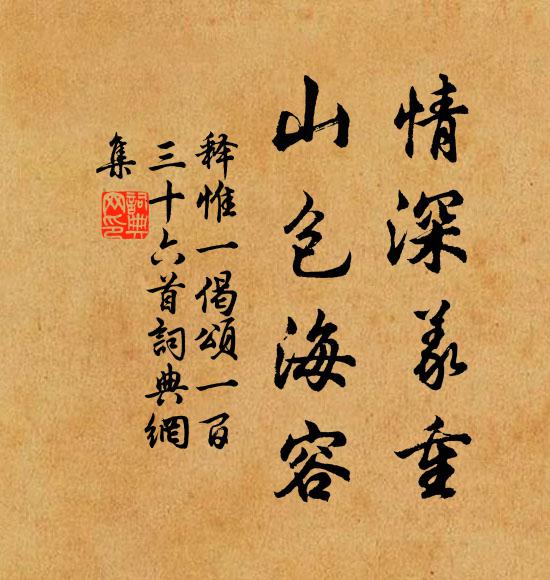 情深義重
山包海容
释惟一偈頌一百
三十六首詞典網
集
詞典网印